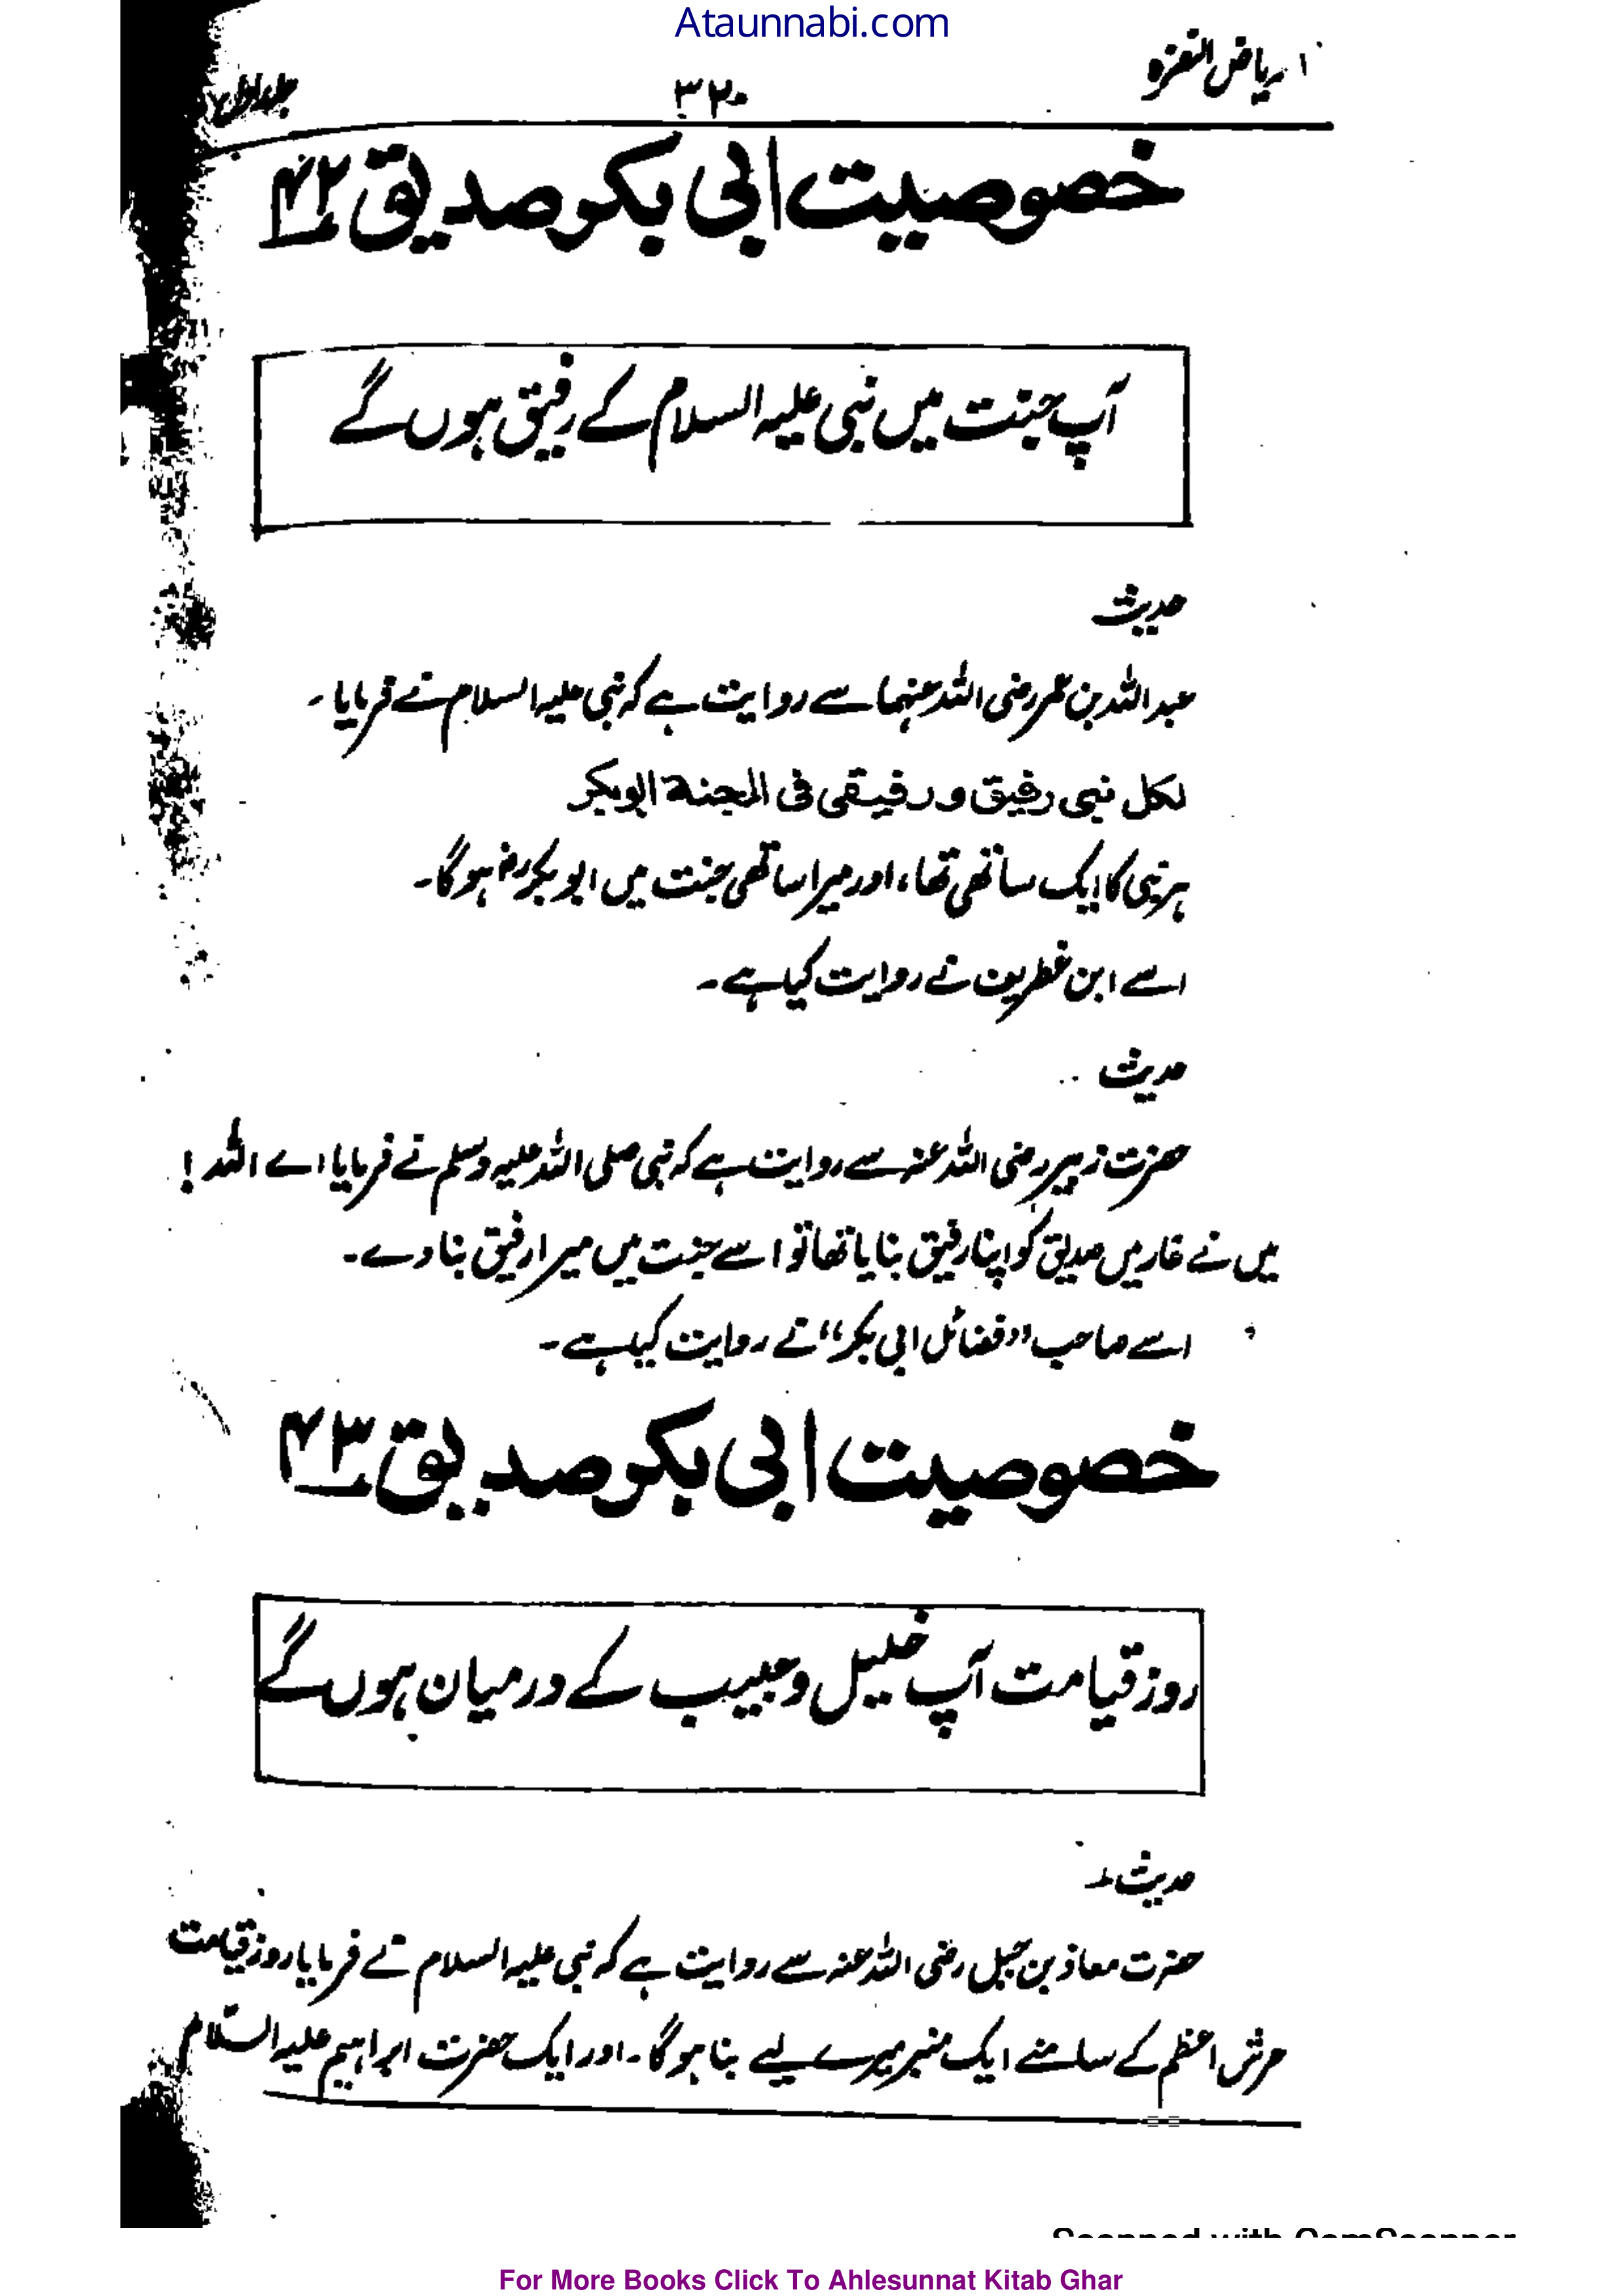 Ataunnabi.com
ریاض النضرہ ۳۲۰ جلد اول
خصوصیت ابی بکر صدیق ۴۲
آپ جنت میں نبی علیہ السلام کے رفیق ہوں گے
حدیث
عبداللہ بن عمر رضی اللہ عنہما سے روایت ہے کہ نبی علیہ السلام نے فرمایا۔
لکل نبی رفیق و رفیقی فی الجنۃ ابوبکر
ہر نبی کا ایک ساتھی تھا، اور میرا ساتھی جنت میں ابوبکرؓ ہو گا۔
اسے ابن غطریف نے روایت کیا ہے۔
حدیث
حضرت زبیر رضی اللہ عنہ سے روایت ہے کہ نبی صلی اللہ علیہ وسلم نے فرمایا اے اللہ!
میں نے غار میں صدیق کو اپنا رفیق بنایا تھا تو اسے جنت میں میرا رفیق بنا دے۔
اسے صاحب ”فضائل ابی بکر“ نے روایت کیا ہے۔
خصوصیت ابی بکر صدیق ۴۳
روز قیامت آپ خلیل و حبیب کے درمیان ہوں گے
حدیث
حضرت معاذ بن جبل رضی اللہ عنہ سے روایت ہے کہ نبی علیہ السلام نے فرمایا روز قیامت
عرش اعظم کے سامنے ایک منبر میرے لیے بنا ہو گا۔ اور ایک حضرت ابراہیم علیہ السّلام
Scanned with CamScanner
For More Books Click To Ahlesunnat Kitab Ghar